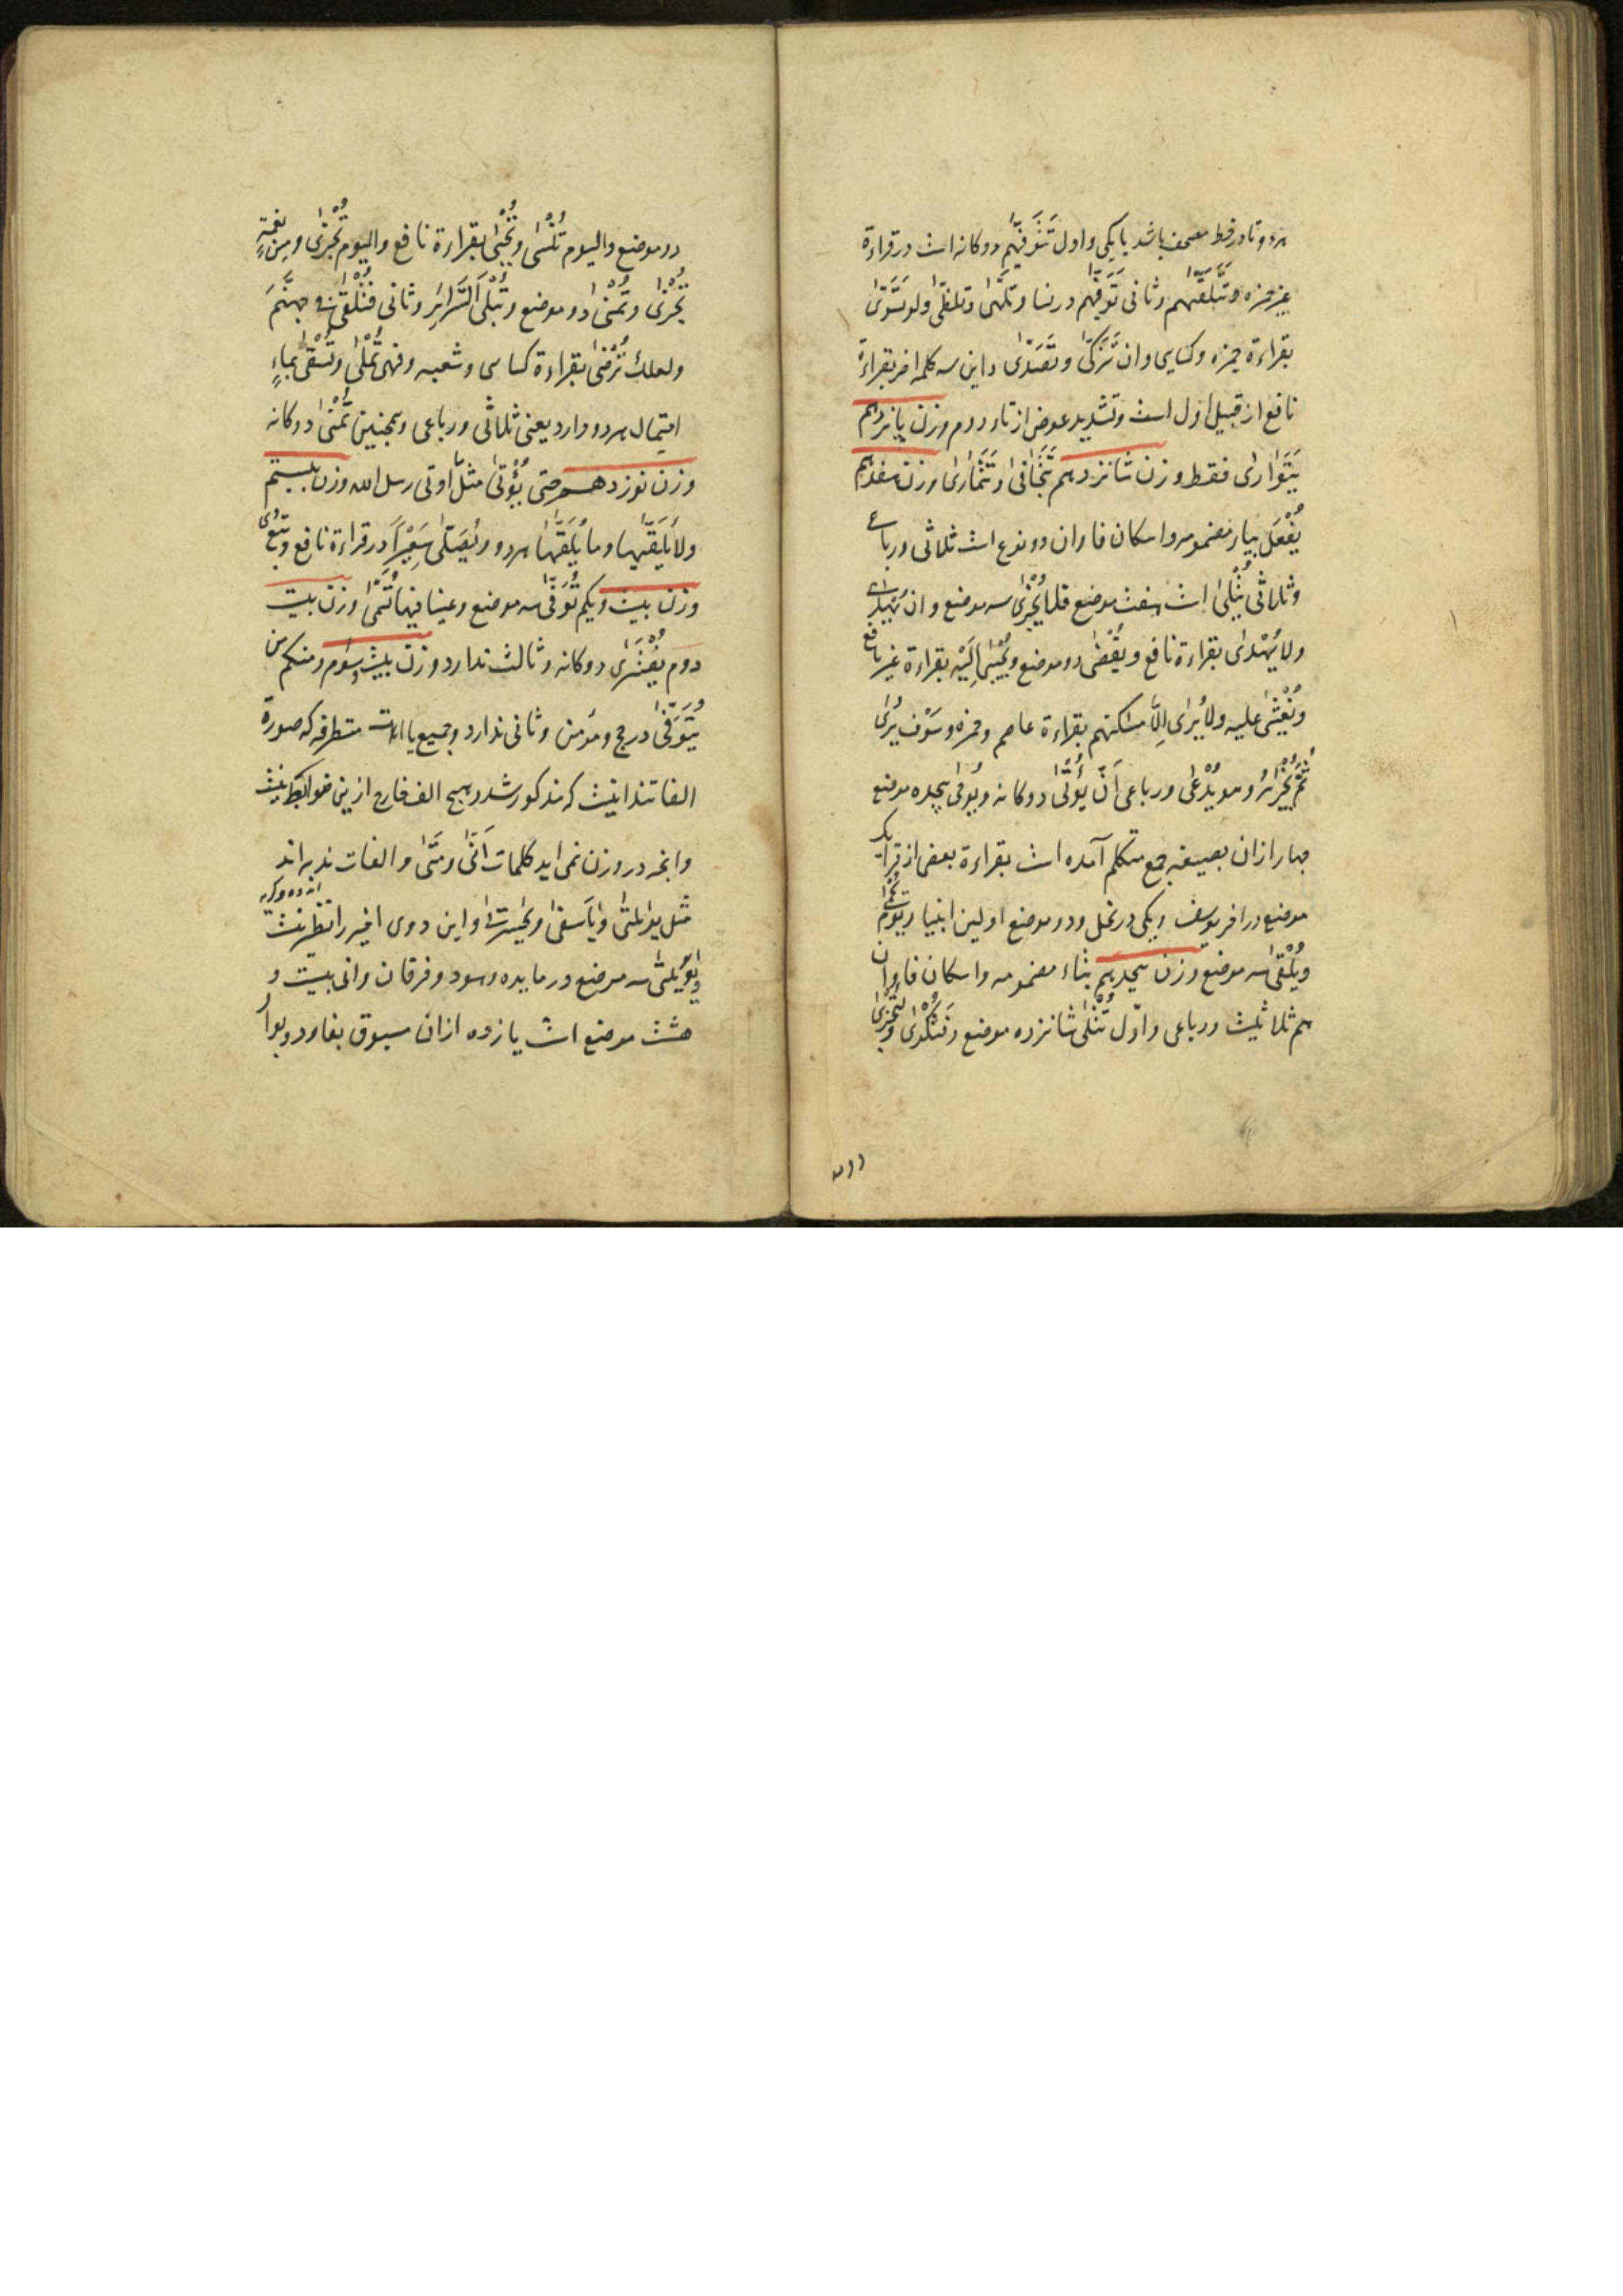 هر دو تا در خط مصحف باشد یا یکی و اول تَتَوَفّٰیهُم دوکانه است در قراءة
غیر حمزه وَتَتَلَقّٰیهُم و ثانی تَوَفّٰیهم در نسا و تَلَهّٰی و تَلَظّٰی و لو تَسَّوّٰی
بقراءة حمزه و کسایی و ان تَزَّکّٰی و تَصَّدّٰی و این سه کلمه اخر بقراءة
نافع از قبیل اول است و تشدید عوض از تاء دوم وزن پانزدهم
یَتَوٰارٰی فقط وزن شانزدهم تَتَجٰافٰی و تَتَمٰارٰی وزن هفدهم
یُفْعَل بیاء مضمومه و اسکان فا و ان دو نوع است ثلاثی و رباعی
و ثلاثی یُتْلٰی است هفت موضع فلا یُجْزٰی سه موضع و ان
ولا یُهْدٰی بقراءة نافع و یُقْضٰی دو موضع و یُجْبٰی اِلَیْهِ بقراءة غیر نافع
و یُغْشٰی علیه ولا یُرٰی اِلّا مسٰکنهم بقراءة عاصم و حمزه و سَوْفَ یُرٰی
ثُمَّ یُجْزٰیهُ و هو یُدْعٰی و رباعی اَنْ یُؤْتٰی دوکانه و یُوحٰی هیجده موضع
چهار ازان بصیغه جمع متکلم آمده است بقراءة بعضی از قرا یک
موضع در اخر یوسف و یکی در نحل و دو موضع اولین انبیا و یَوْمَ یُحْمٰی
و یُلْقٰی سه موضع وزن هیجدهم بتاء مضمومه و اسکان فا و ان
هم ثلاثیست و رباعی و اوّل تُتْلٰی شانزده موضع و تُجْزٰی
دو موضع و الیوم تُنْسٰی و تُجْبٰی بقراءة نافع و الیوم تُجْزٰی و مِن نِعْمَةٍ
تُجْزٰی و تُمْنٰی دو موضع و تُبْلَی السَّرٰائِرُ و ثانی فَتُلْقٰی فی جهنَّمَ
و لعلك تُرْضٰی بقراءة کسایی و شعبه و فهی تُمْلٰی و تُسْقٰی بماءٍ
احتمال هر دو دارد یعنی ثلاثی و رباعی و همچنین تُمْنٰی دوکانه
وزن نوزدهم حتی نُؤْتٰی مثلَ ما اوتی رسل الله وزن بیستم
ولا یُلَقّٰیها و ما یُلَقّٰیها هر دو و یُصَلّٰی سَعِیْراً در قراءة نافع و
وزن بیست و یکم تُوَفّٰی سه موضع و عینا فیها تُسَمّٰی وزن بیست
دوم یُفْتَرٰی دوکانه و ثالث ندارد وزن بیست و سوم و منکم من
یُتَوَفّٰی در حج و مؤمن و ثانی ندارد و جمیع یاءات متطرفه که صورة
الفاتند اینست که مذکور شد و هیچ الف خارج ازین ضوابط نیست
و انچه در وزن نمی اید کلمات اَنّٰی و مَتٰی و الفات ندبه اند
مثل یٰوَیْلَتٰی و یٰاَسَفٰی و یٰحَسْرَتٰی و این دوی اخیر را نظیر نیست
و یٰوَیْلَتٰی سه موضع در مایده و هود و فرقان و انی بیست و
هشت موضع است یازده ازان مسبوق بفا و دو بواو